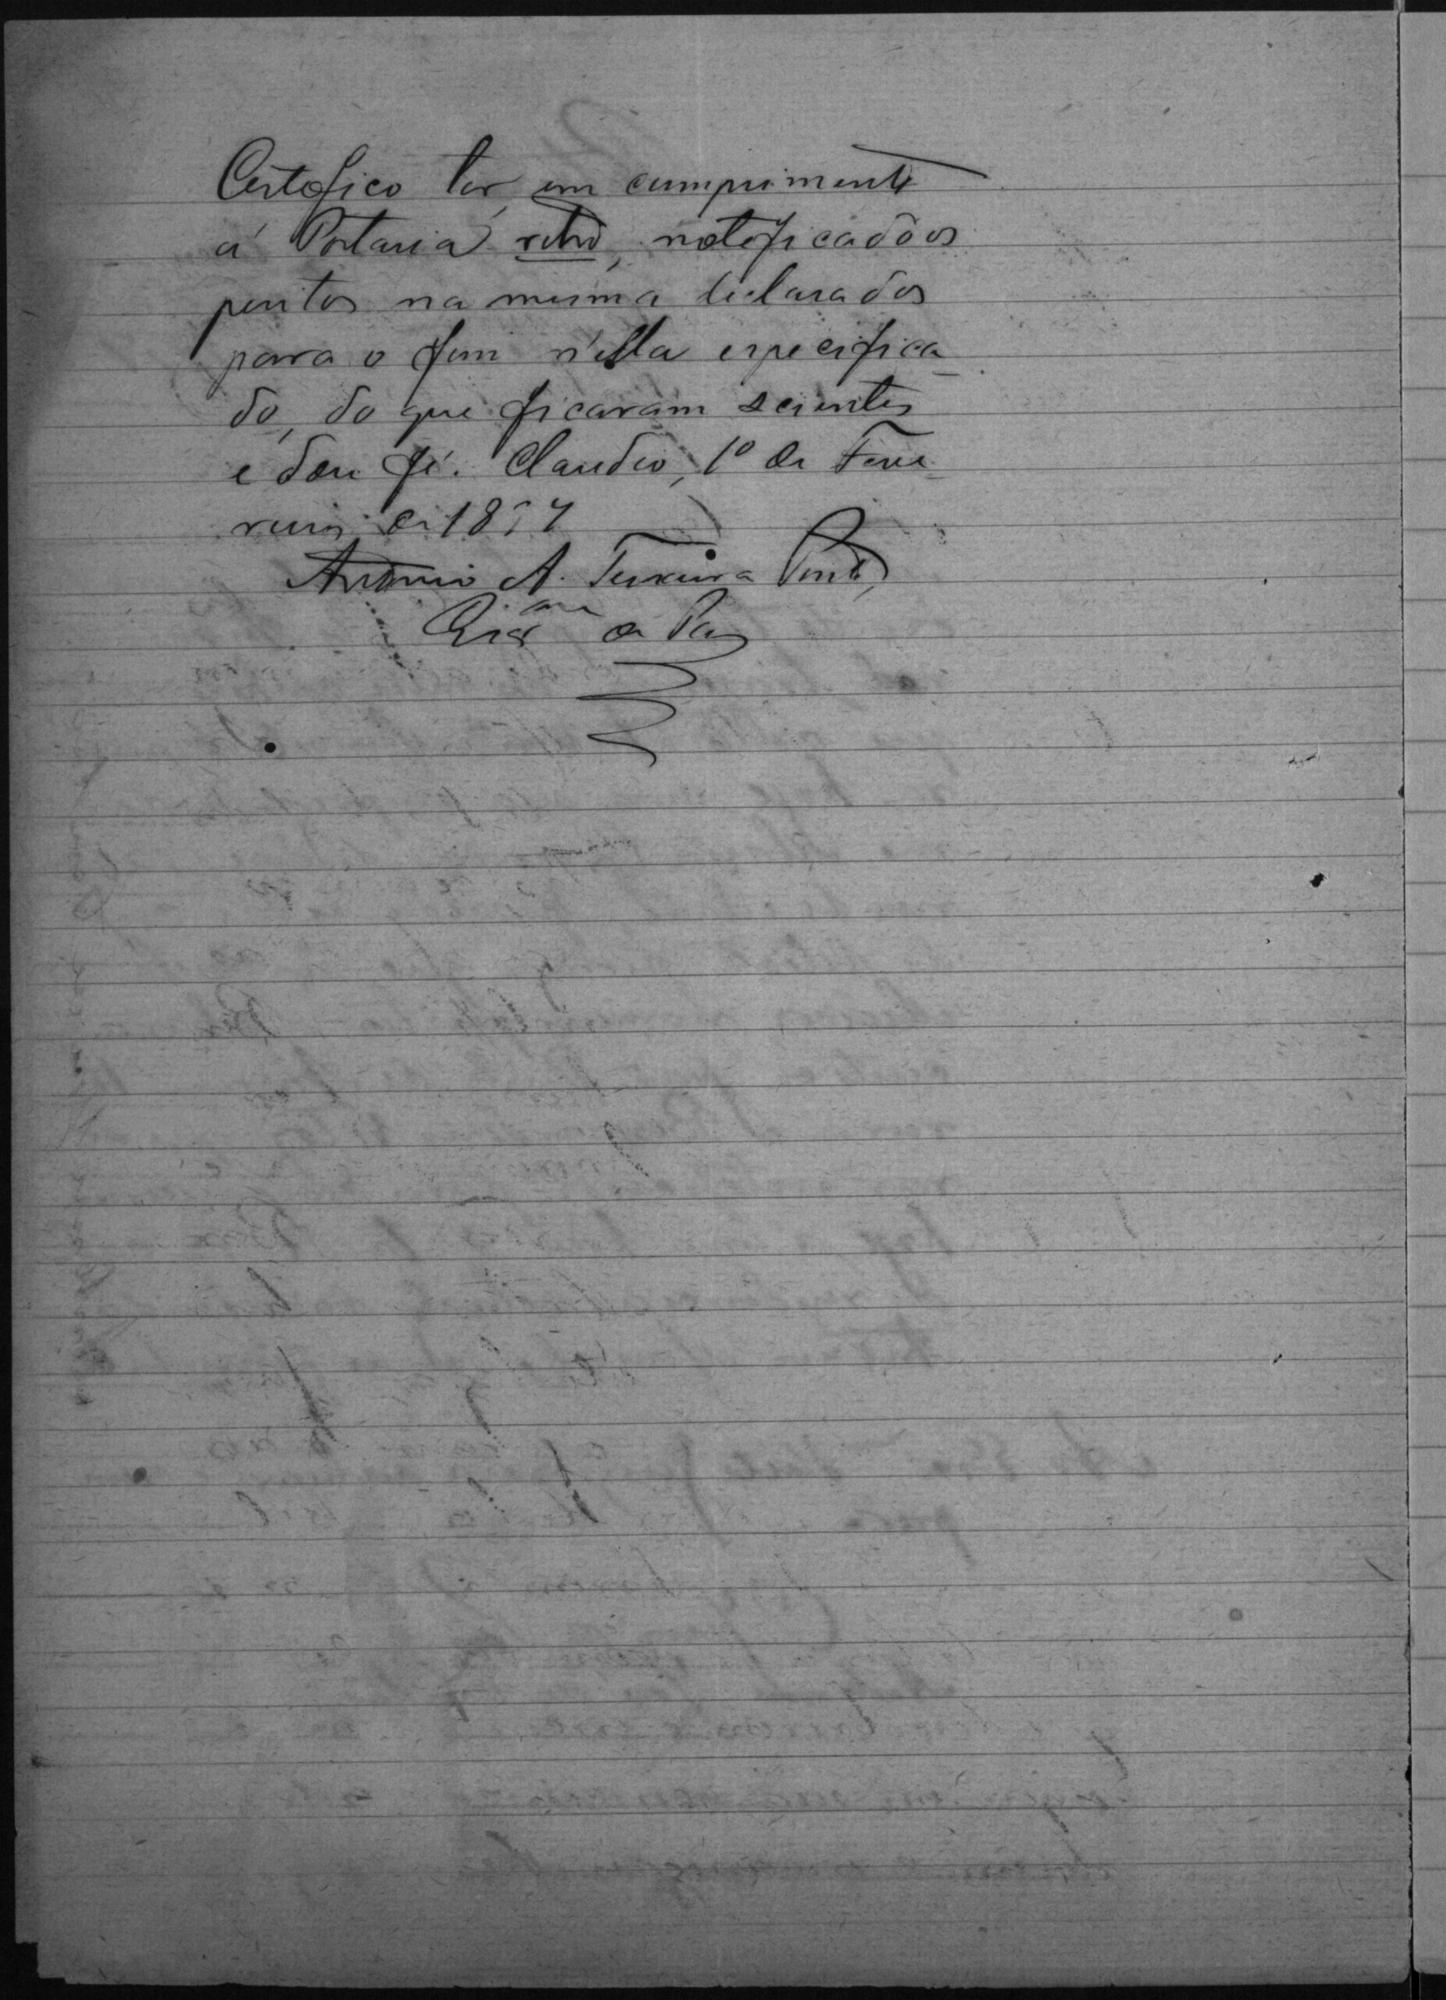 Certefico ter, em cumprimento
á Portaria retro, noteficado os
peritos na mesma declarados
para o fim n'ella especifica-
do, do que ficaram scientes
e dou fé. Claudio, 1º de Feve-
reiro de 1897
Antonio A. Teixeira Pinto,
Escrᵃᵐ de Paz